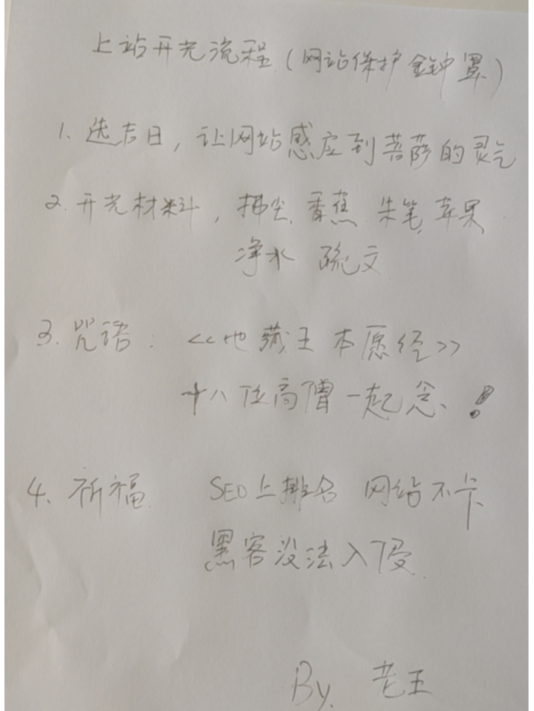 上站开光流程(网站保护金钟罩)
1. 选吉日,让网站感应到菩萨的灵气
2. 开光材料,拂尘 香蕉 朱笔 苹果
净水 疏文
3. 咒语: <<地藏王本愿经>>
十八位高僧一起念!
4. 祈福 SEO上排名 网站不卡
黑客没法入侵
By. 老王